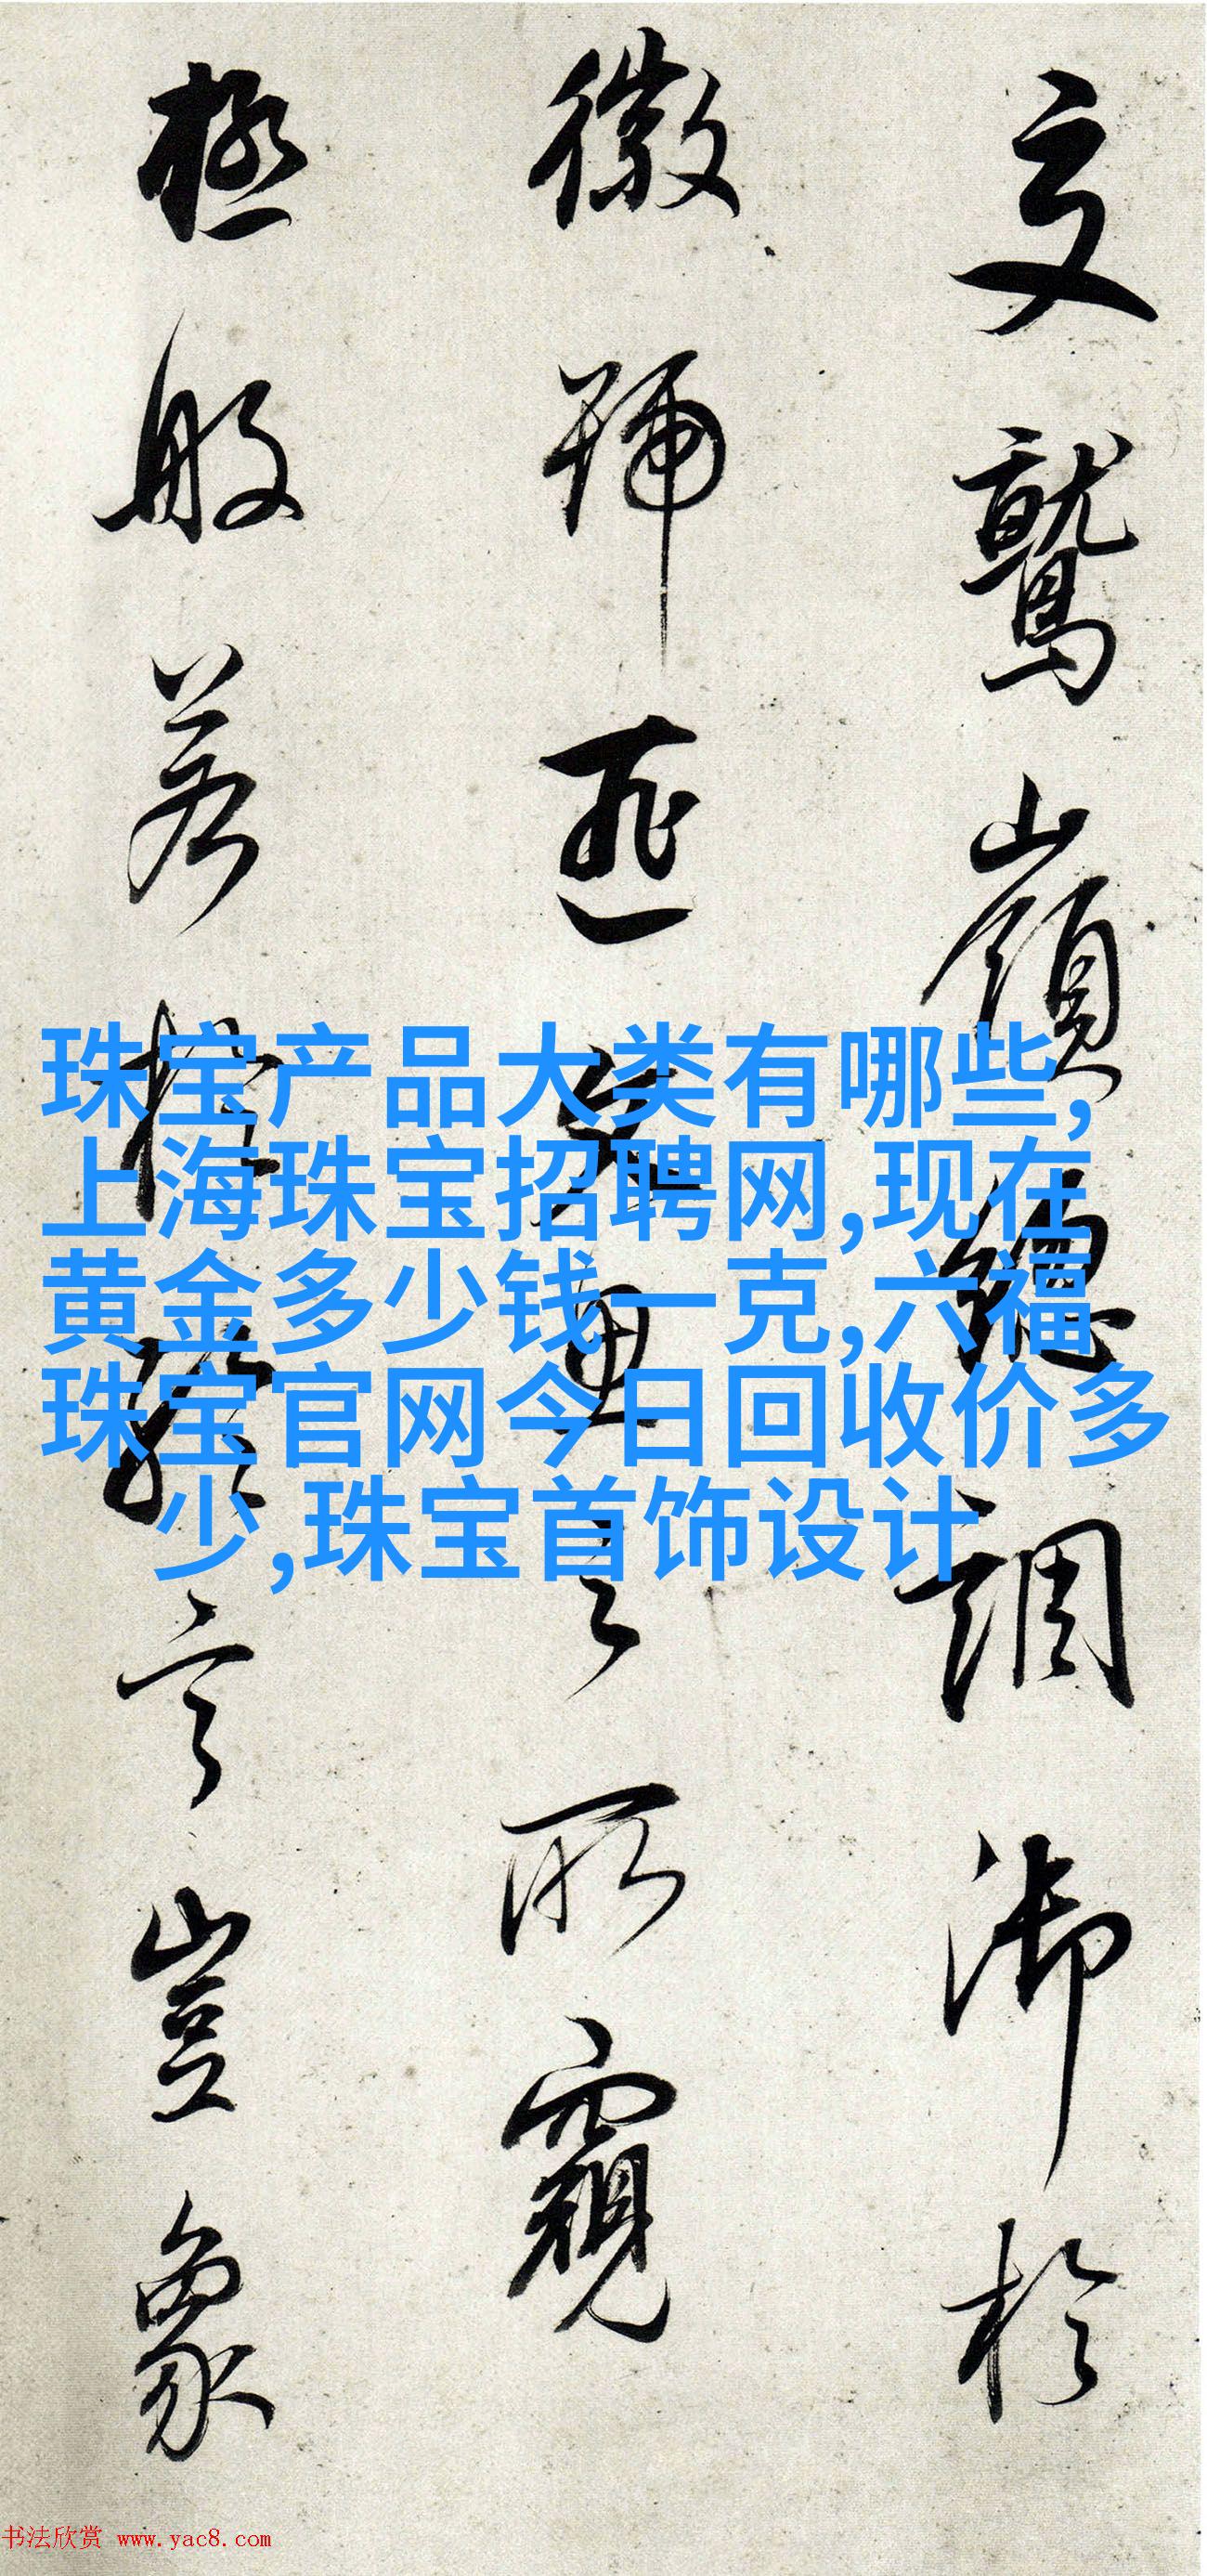 鷲嶺總調御於
徽號匪文思之所窺
極般若於綸言豈象
珠宝产品大类有哪些,
上海珠宝招聘网,现在
黄金多少钱一克,六福
珠宝官网今日回收价多
少,珠宝首饰设计
书法欣赏 www.yac8.com